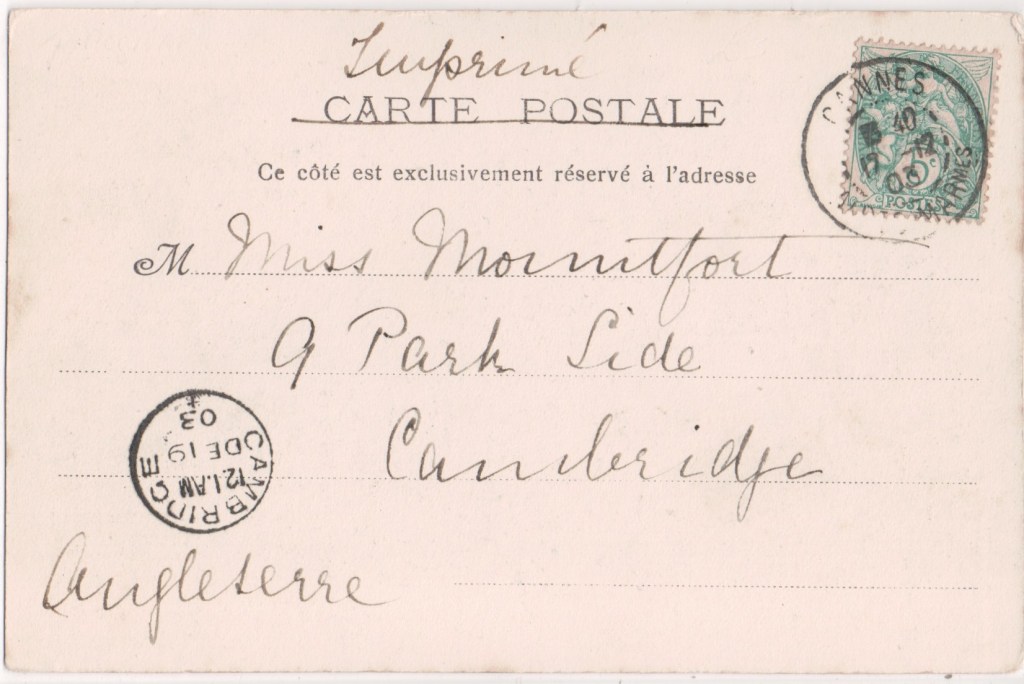 Imprimé
CARTE POSTALE
Ce côté est exclusivement réservé à l'adresse
CANNES
10
12
03
5c
POSTES
M Miss Mountfort
9 Park Side
Cambridge
Angleterre
CAMBRIDGE
12.1.AM
DE 19
03